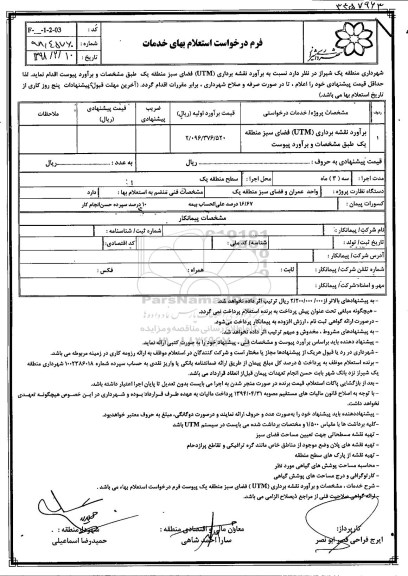 کد : F-__-1-2-03
شماره :
تاریخ : ۱۳۹۸/۲/۱۰
فرم درخواست استعلام بهای خدمات
شهرداری منطقه یک شیراز در نظر دارد نسبت به برآورد نقشه برداری (UTM) فضای سبز منطقه یک طبق مشخصات و برآورد پیوست اقدام نماید. لذا
حداقل قیمت پیشنهادی خود را اعلام ، تا در صورت صرفه و صلاح شهرداری ، برابر مقررات اقدام گردد. (آخرین مهلت قبول پیشنهادات پنج روز کاری از
تاریخ استعلام بها می باشد)
ردیف
مشخصات پروژه/ خدمات درخواستی
قیمت برآورد اولیه (ریال)
ضریب پیشنهادی
قیمت پیشنهادی (ریال)
ملاحظات
۱
برآورد نقشه برداری (UTM) فضای سبز منطقه
یک طبق مشخصات و برآورد پیوست
۲/۰۹۶/۳۷۶/۵۲۰
قیمت پیشنهادی به حروف : ریال به عدد : ریال
مدت اجرا : سه ( ۳ ) ماه محل اجرا : سطح منطقه یک
دستگاه نظارت پروژه : واحد عمران و فضای سبز منطقه یک مشخصات فنی منضم به استعلام بها : دارد
کسورات پیمان : ۱۶۱۶۷ درصد علی الحساب بیمه ۱۰ درصد سپرده حسن انجام کار
مشخصات پیمانکار
نام شرکت/ پیمانکار : شماره ثبت/ شناسنامه :
تاریخ ثبت/ تولد : شناسه/ کد ملی : کد اقتصادی:
آدرس شرکت/ پیمانکار :
شماره تلفن شرکت/ پیمانکار : ثابت : همراه : فکس :
مهر و امضاء شرکت/ پیمانکار :
- به پیشنهادهای بالاتر از ریال ترتیب اثر داده نخواهد شد.
- هیچگونه مبلغی تحت عنوان پیش پرداخت به برنده استعلام پرداخت نمی گردد.
- درصورت ارائه گواهی ثبت نام ، ارزش افزوده به پیمانکار پرداخت میشود.
- به پیشنهادهای مشروط ، مخدوش و مبهم ترتیب اثر داده نخواهد شد.
- پیشنهاد دهنده باید براساس برآورد پیوست و مشخصات فنی ، پیشنهاد خود را به صورت کتبی ارائه نماید.
- شهرداری در رد یا قبول هریک از پیشنهادها مجاز یا مختار است و شرکت کنندگان در استعلام موظف به ارائه رزومه کاری در زمینه مربوطه می باشد.
- برنده استعلام موظف به پرداخت ۵ درصد کل مبلغ پیمان از طریق ارائه ضمانتنامه بانکی یا واریز نقدی به حساب سپرده شماره ۱۰۰۲۳۸۶۰۱۸ شهرداری منطقه
یک شیراز نزد بانک شهر بابت حسن انجام تعهدات پیمان قبل از انعقاد قرارداد می باشد.
- بعد از بازگشایی پاکات استعلام، قیمت برنده در صورت منجر شدن به اجرا می بایست بدون تعدیل تا پایان اجرا اعتبار داشته باشد.
- با توجه به اصلاح قانون مالیات های مستقیم مصوبه ۱۳۹۴/۰۴/۳۱ پرداخت مالیات به عهده طرف قرارداد بوده و شهرداری در این خصوص هیچگونه تعهدی
نخواهد داشت.
- پیشنهاددهنده باید پیشنهاد خود را به صورت عدد و حروف ارائه نمایند و درصورت دوگانگی، مبلغ به حروف معتبر خواهد بود.
- کلیه برداشت ها با مقیاس ۱/۵۰۰ و مختصات برداشت شده می بایست در سیستم UTM باشد
- تهیه نقشه مسطحاتی جهت تعیین مساحت فضای سبز
- تهیه نقشه های پلان وضع موجود از مناطق خاص مانند گره ترافیکی و تقاطع پرازدحام
- تهیه نقشه از پارک های سطح منطقه
- محاسبه مساحت پوشش های گیاهی مورد نظر
- کارتوگرافی و درج مساحت های گیاهی
- شرح خدمات ، مشخصات و برآورد نقشه برداری (UTM) فضای سبز منطقه یک پیوست فرم درخواست استعلام بهاء می باشد .
- ارائه گواهی صلاحیت فنی از مراجع ذیصلاح الزامی می باشد.
کارپرداز:
ایرج فراحی قصر ابو نصر
معاون مالی و اقتصادی منطقه :
سارا احمد شاهی
شهردار منطقه :
حمیدرضا اسماعیلی